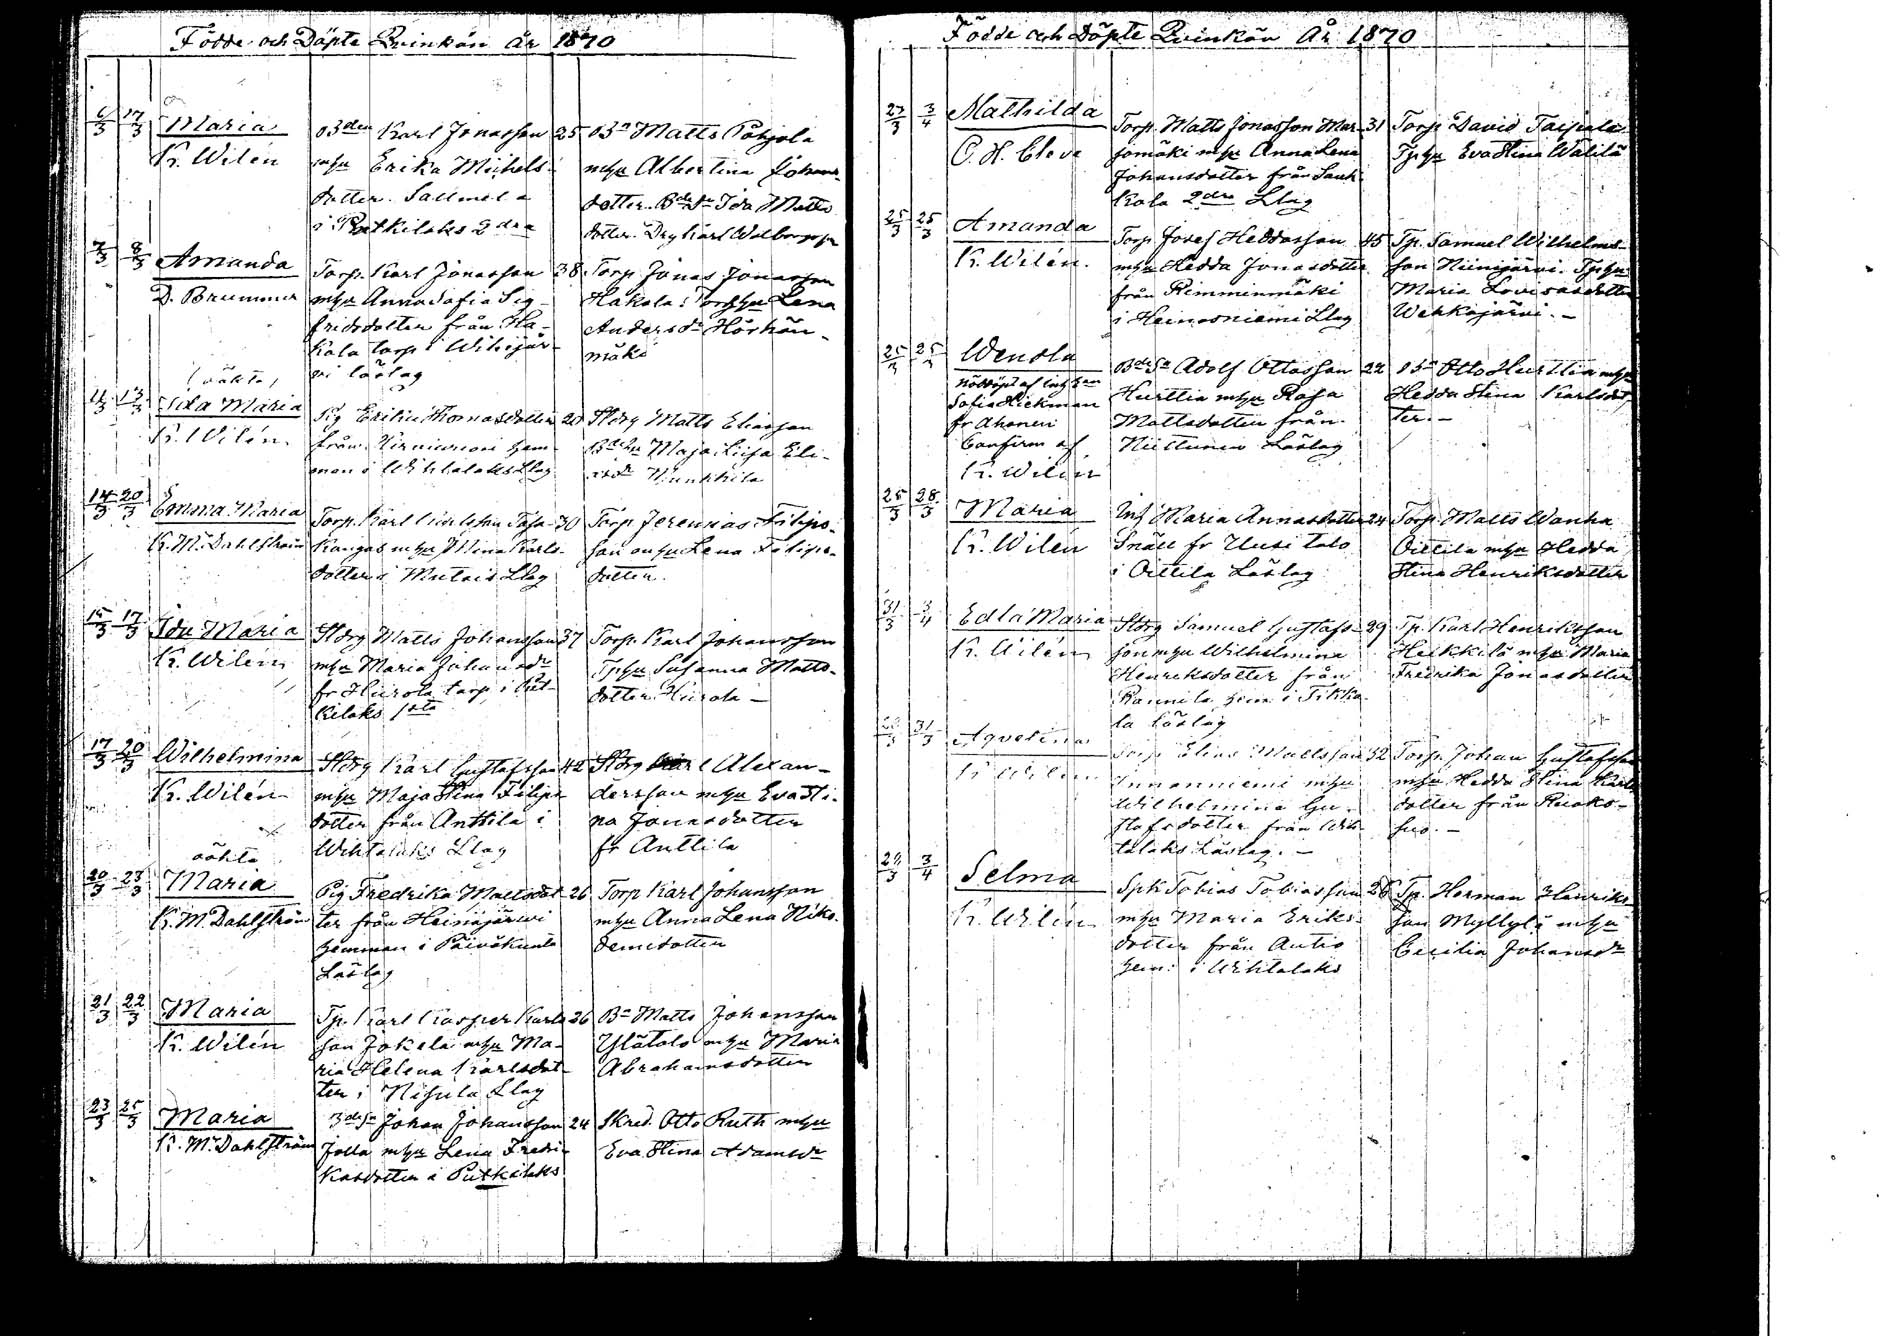 Födde och Döpte Qvinkön År 1870
6/3 17/3 Maria
K. Wilén
Bden Karl Jonasson 25
mhu Erika Michels-
dotter Sallmela
i Putkilaks 2dra
Bn Matts Pohjola
mhu Albertina Johans-
dotter. Bde Sn Ida Matts
dotter. Drg Karl
7/3 8/3 Amanda
D. Brummer
Torp. Karl Jonasson 38
mhu Anna Sofia Sig-
fridsdotter från Ha-
kala torp i Wihijär-
vi låslag
Torp Jonas Jonasson
Hakala: Torphu Lena
Andersdr Horhän-
mäki
(oäkta)
11/3 13/3 Ida Maria
K. Wilén
Pig Erika Thomasdotter 20
från hem-
man i Wihtalaks Llag
Stdrg Matts Eliasson
Maja Lisa Eli-
asdr Munkkila
14/3 20/3 Emma Maria
K. M. Dahlström
Torp. Karl Karlsson 30
Kangas mhu Stina Karls-
dotter i Llag
Torp. Jeremias Filips-
son mhu Lena Filips-
dotter.
15/3 17/3 Ida Maria
K. Wilén
Stdrg Matts Johansson 37
mhu Maria Johansdr
fr Hurola torp i Put-
kilaks 1sta
Torp. Karl Johansson
Tphu Susanna Matts-
dotter Hurola —
17/3 20/3 Wilhelmina
K. Wilén
Stdrg Karl Gustafsson 42
mhu Maja Stina Filips
dotter från Anttila i
Wihtalaks Llag
Stdrg Karl Alexan-
dersson mhu Eva Sti-
na Jonasdotter
fr Anttila
oäkta
20/3 23/3 Maria
K. M. Dahlström
Pig Fredrika Mattsdot- 26
ter från Heinijärwi
hemman i Päiväkunta
Låslag
Torp Karl Johansson
mhu Anna Lena Niko-
demidotter
21/3 22/3 Maria
K. Wilén
Tp. Karl Kasper Karls 36
son Jokela mhu Ma-
ria Helena Karlsdot-
ter i Nisula Llag
Bn Matts Johansson
Ylätalo mhu Maria
Abrahamsdotter
23/3 25/3 Maria
K. M. Dahlström
BdeSn Johan Johansson 24
Jolla mhu Lena Fredri-
kasdotter i Putkilaks
Skräd. Otto Ruth mhu
Eva Stina Adamsdr
Födde och Döpte Qvinkön År 1870
23/3 3/4 Mathilda
C. H. Cleve
Torp. Matts Jonasson Mar- 31
jomäki mhu Anna Lena
Johansdotter från Sauk-
kola 2dra Llag
Torp. David Taipale
Tphu Eva Stina Walilä
25/3 25/3 Amanda
K. Wilén.
Torp Josef Heddasson 45
mhu Hedda Jonasdotter
från Rimminmäki
i Heinosniemi Llag
Tp. Samuel Wilhelms-
son Niinijärvi. Tphu
Maria Lovisasdotter
Wehkajärvi. —
25/3 25/3 Wendla
nöddöpt af
Sofia Hickman
fr Ahonen
Confirm af
K. Wilén
BdeSn Adolf Ottosson 22
Hurttia mhu Rosa
Mattsdotter från
Niittunen Låslag
Bn Otto Hurttia mhu
Hedda Stina Karlsdot-
ter. —
25/3 28/3 Maria
K. Wilén
Inh Maria Annasdotter 24
Snäll fr Uusi talo
i Oittila Låslag
Torp. Matts Wanha
Oittila mhu Hedda
Stina Henriksdotter
31/3 3/4 Edla Maria
K. Wilén
Stdrg Samuel Gustafs- 29
son mhu Wilhelmina
Henriksdotter från
Rannila hem i Tikka
la låslag
Tp. Karl Henriksson
Heikkilä mhu Maria
Fredrika Jonasdotter
31/3 Agvelina
K. Wilén
Torp. Elias Mattsson 32
mhu
Wilhelmina Gu-
stafsdotter från Wih-
talaks Låslag. —
Torp. Johan Gustafsson
mhu Hedda Stina Karls
dotter från Ruoko-
suo. —
29/3 3/4 Selma
K. Wilén
Spk Tobias Tobiasson 28
mhu Maria Eriks-
dotter från Autio
hem: i Wihtalaks
Tp. Herman Henriks
son Myllylä mhu
Cecilia Johansdr